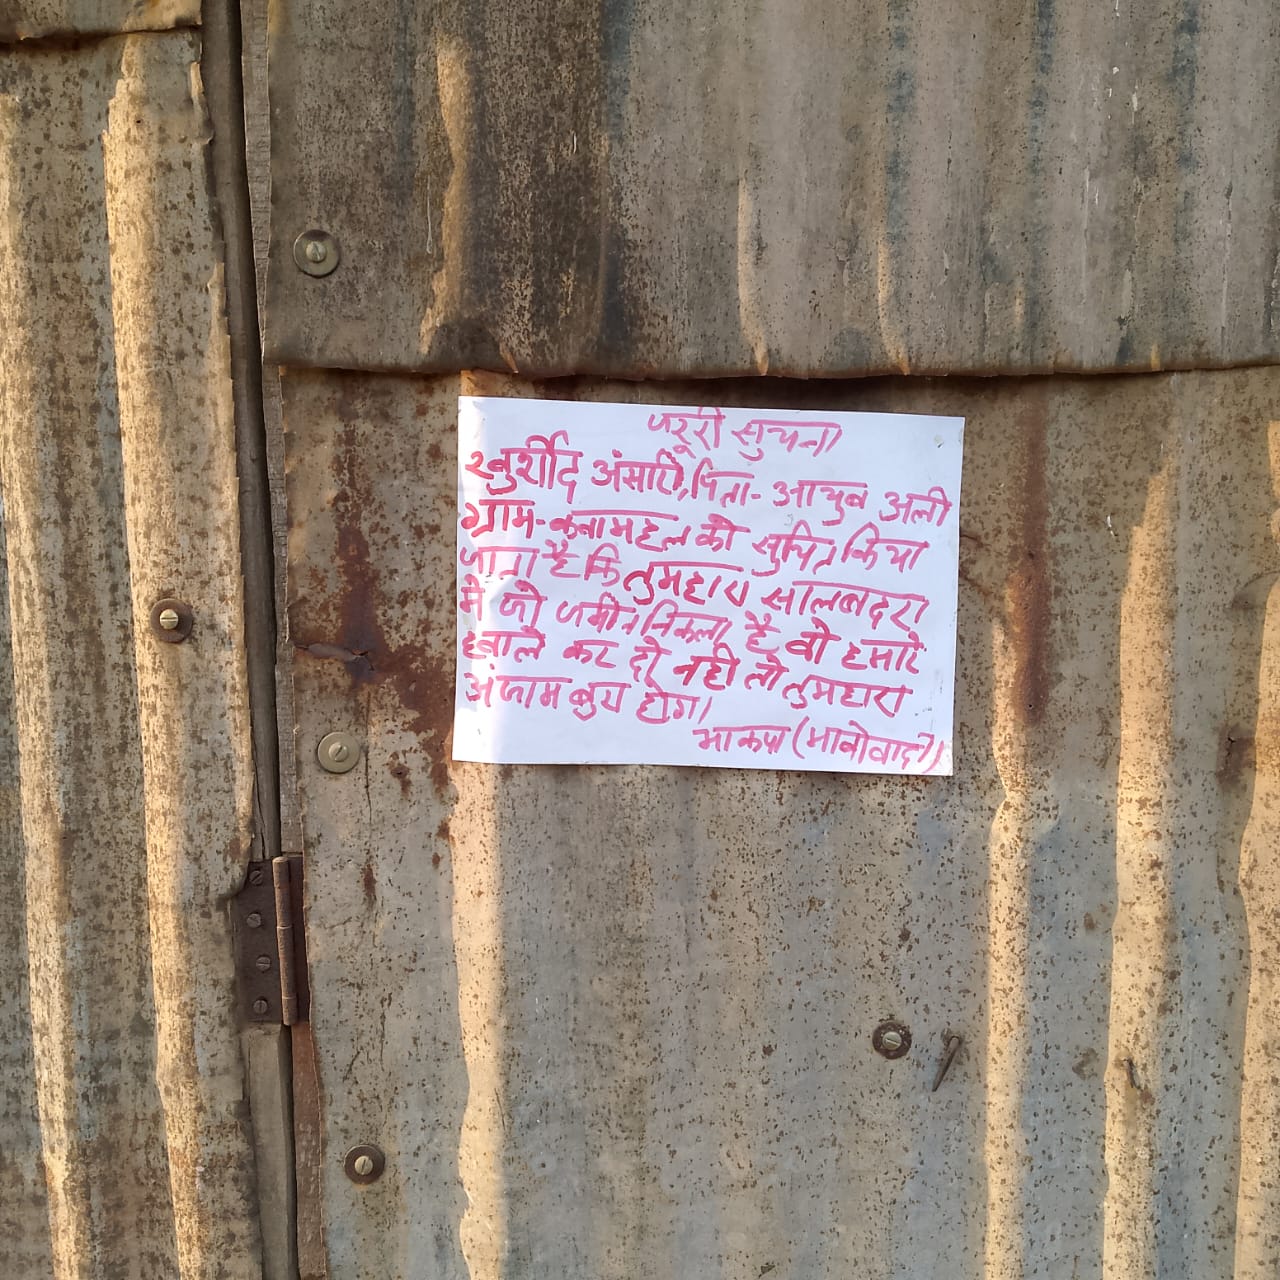 जरूरी सुचना
खुर्शीद अंसारी, पिता- आयुब अली
ग्राम- कवामहल को सुचित किया
जाता है कि तुमहारा सालबदरा
में जो जमीन निकला है वो हमारे
हवाले कर दो नही तो तुमहारा
अंजाम बुरा होगा।
भाकपा (माओवादी)